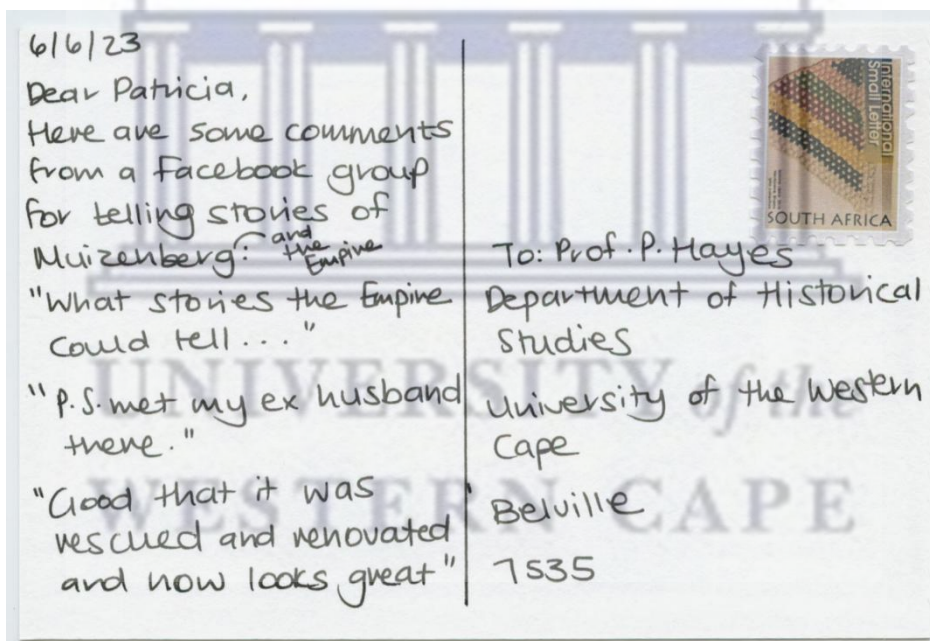 6/6/23
Dear Patricia,
Here are some comments
from a Facebook group
for telling stories of
Muizenberg: and the Empire
"What stories the Empire
could tell..."
"P.S. met my ex husband
there."
"Good that it was
rescued and renovated
and now looks great"
International
Small Letter
SOUTH AFRICA
To: Prof. P. Hayes
Department of Historical
Studies
University of the Western
Cape
Belville
7535
UNIVERSITY of the
WESTERN CAPE